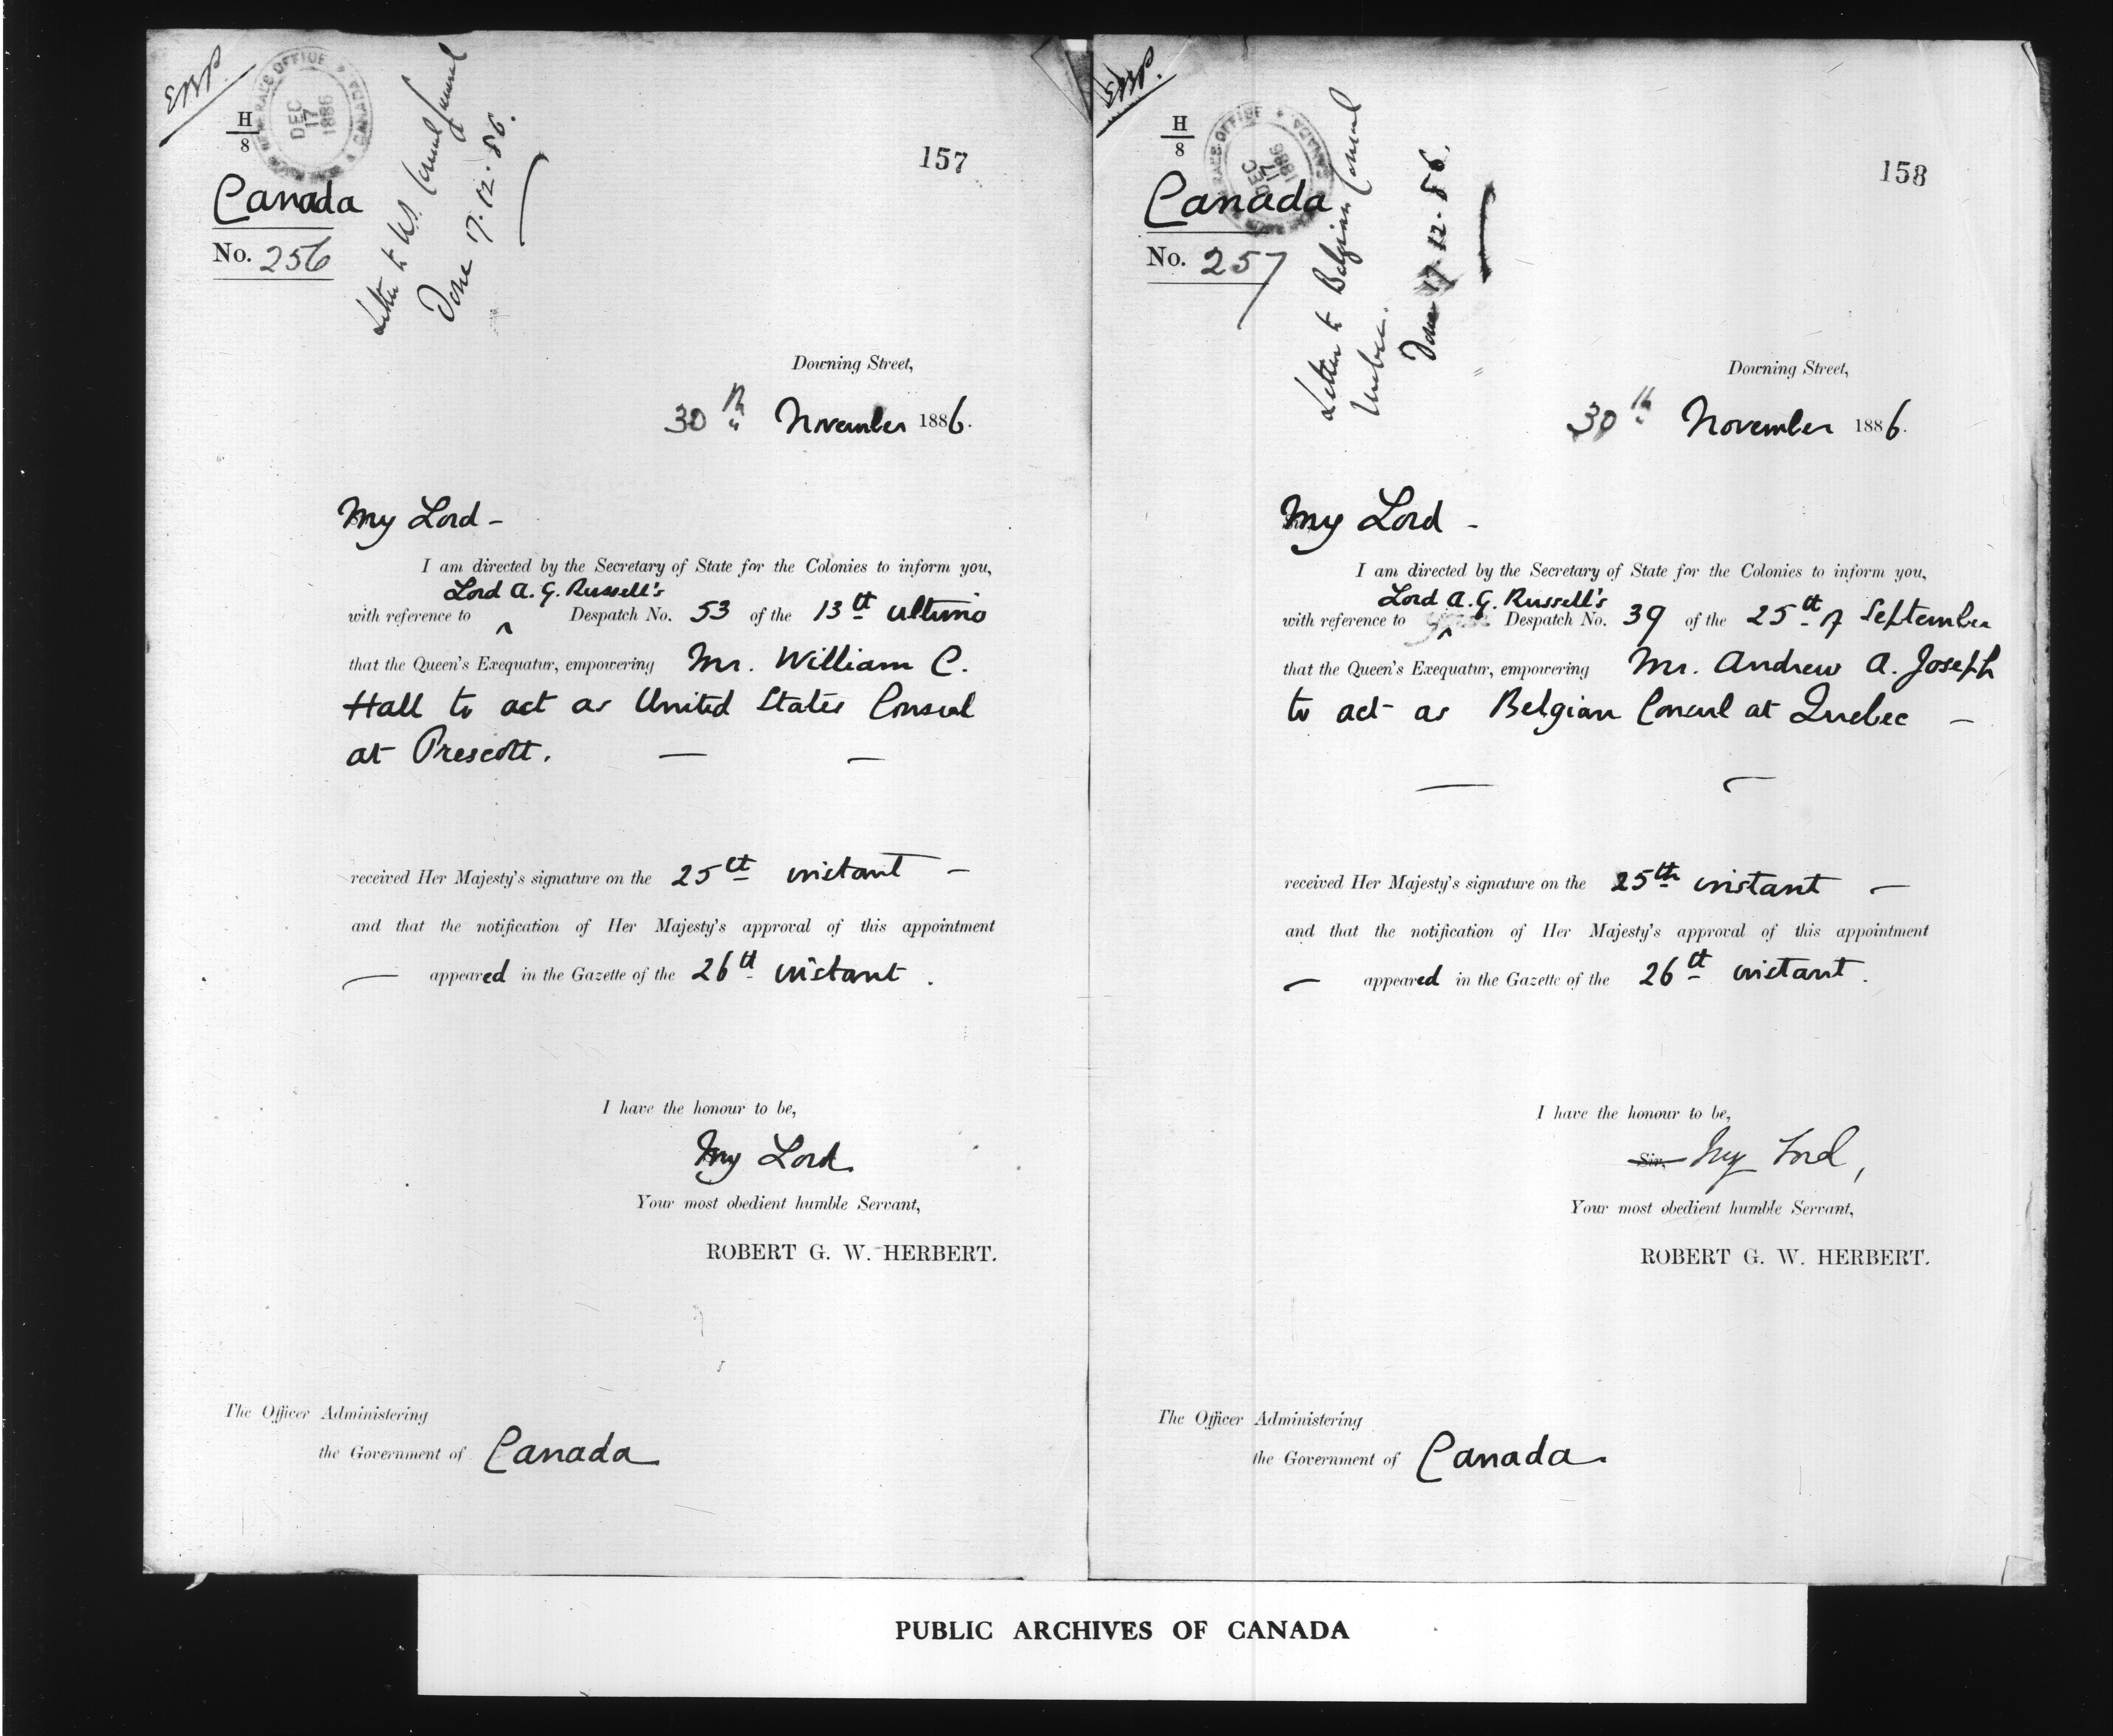 H
8
DEC
17
1886
CANADA
Letter to U.S. Consul
Done 17.12.86.
157
Canada
No. 256
Downing Street,
30th November 1886.
My Lord -
I am directed by the Secretary of State for the Colonies to inform you,
Lord A. G. Russell's
with reference to ^ Despatch No. 53 of the 13th ultimo
that the Queen's Exequatur, empowering Mr. William C.
Hall to act as United States Consul
at Prescott. — —
received Her Majesty's signature on the 25th instant —
and that the notification of Her Majesty's approval of this appointment
— appeared in the Gazette of the 26th instant.
I have the honour to be,
My Lord
Your most obedient humble Servant,
ROBERT G. W. HERBERT.
The Officer Administering
the Government of Canada
H
8
OFFICE
CANADA
DEC
17
1886
Letter to Belgian Consul
Quebec.
Done 17.12.86.
158
Canada
No. 257
Downing Street,
30th November 1886.
My Lord -
I am directed by the Secretary of State for the Colonies to inform you,
Lord A. G. Russell's
with reference to ^ Despatch No. 39 of the 25th of September
that the Queen's Exequatur, empowering Mr. Andrew A. Joseph
to act as Belgian Consul at Quebec —
received Her Majesty's signature on the 25th instant —
and that the notification of Her Majesty's approval of this appointment
— appeared in the Gazette of the 26th instant.
I have the honour to be,
Sir, My Lord,
Your most obedient humble Servant,
ROBERT G. W. HERBERT.
The Officer Administering
the Government of Canada.
PUBLIC ARCHIVES OF CANADA